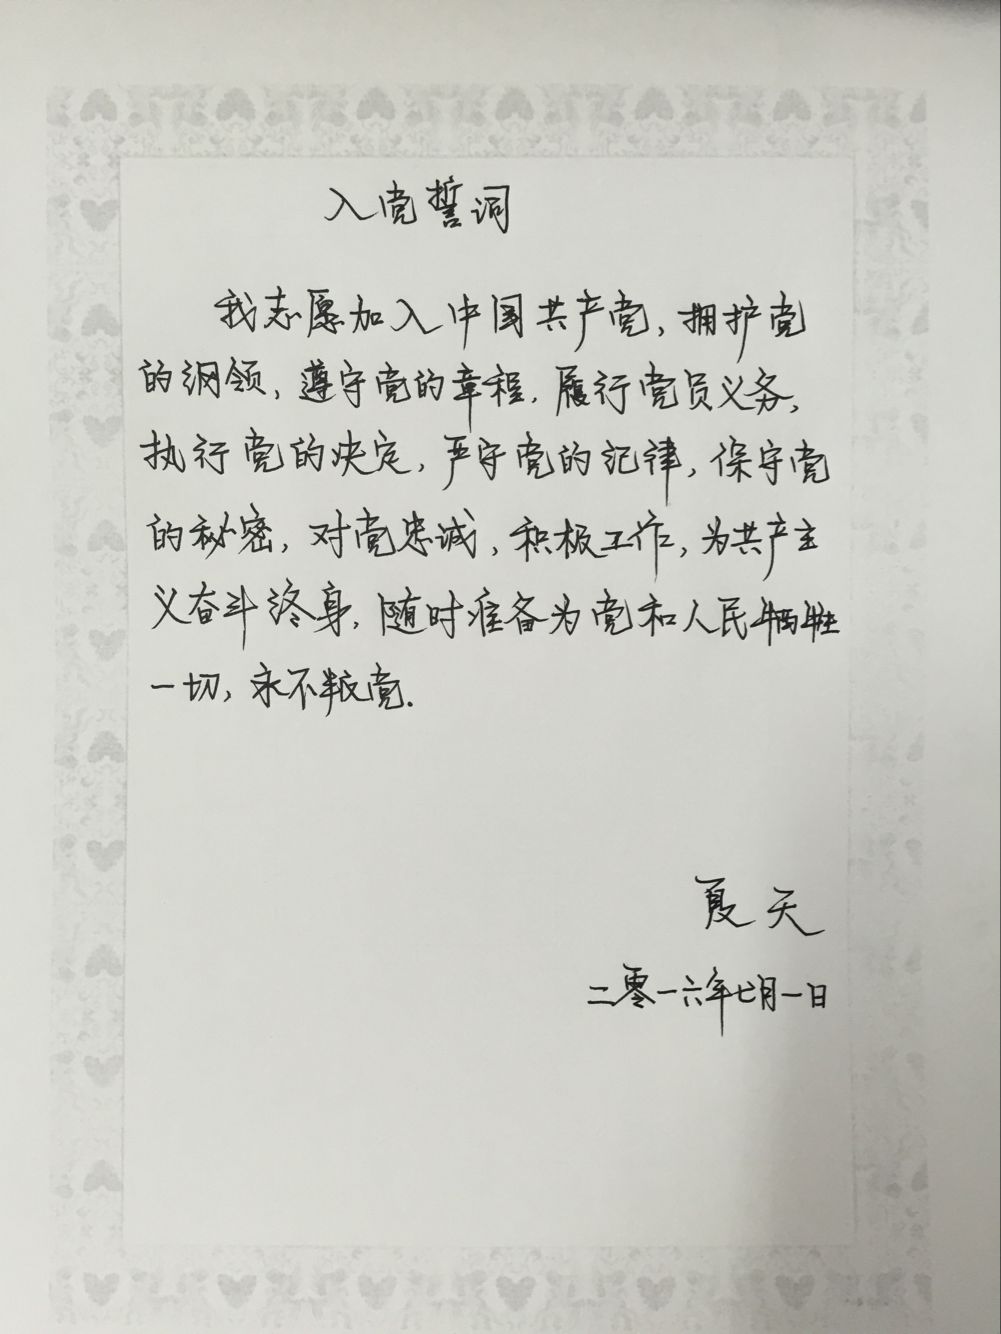 入党誓词
我志愿加入中国共产党，拥护党
的纲领，遵守党的章程，履行党员义务，
执行党的决定，严守党的纪律，保守党
的秘密，对党忠诚，积极工作，为共产主
义奋斗终身，随时准备为党和人民牺牲
一切，永不叛党.
夏天
二零一六年七月一日